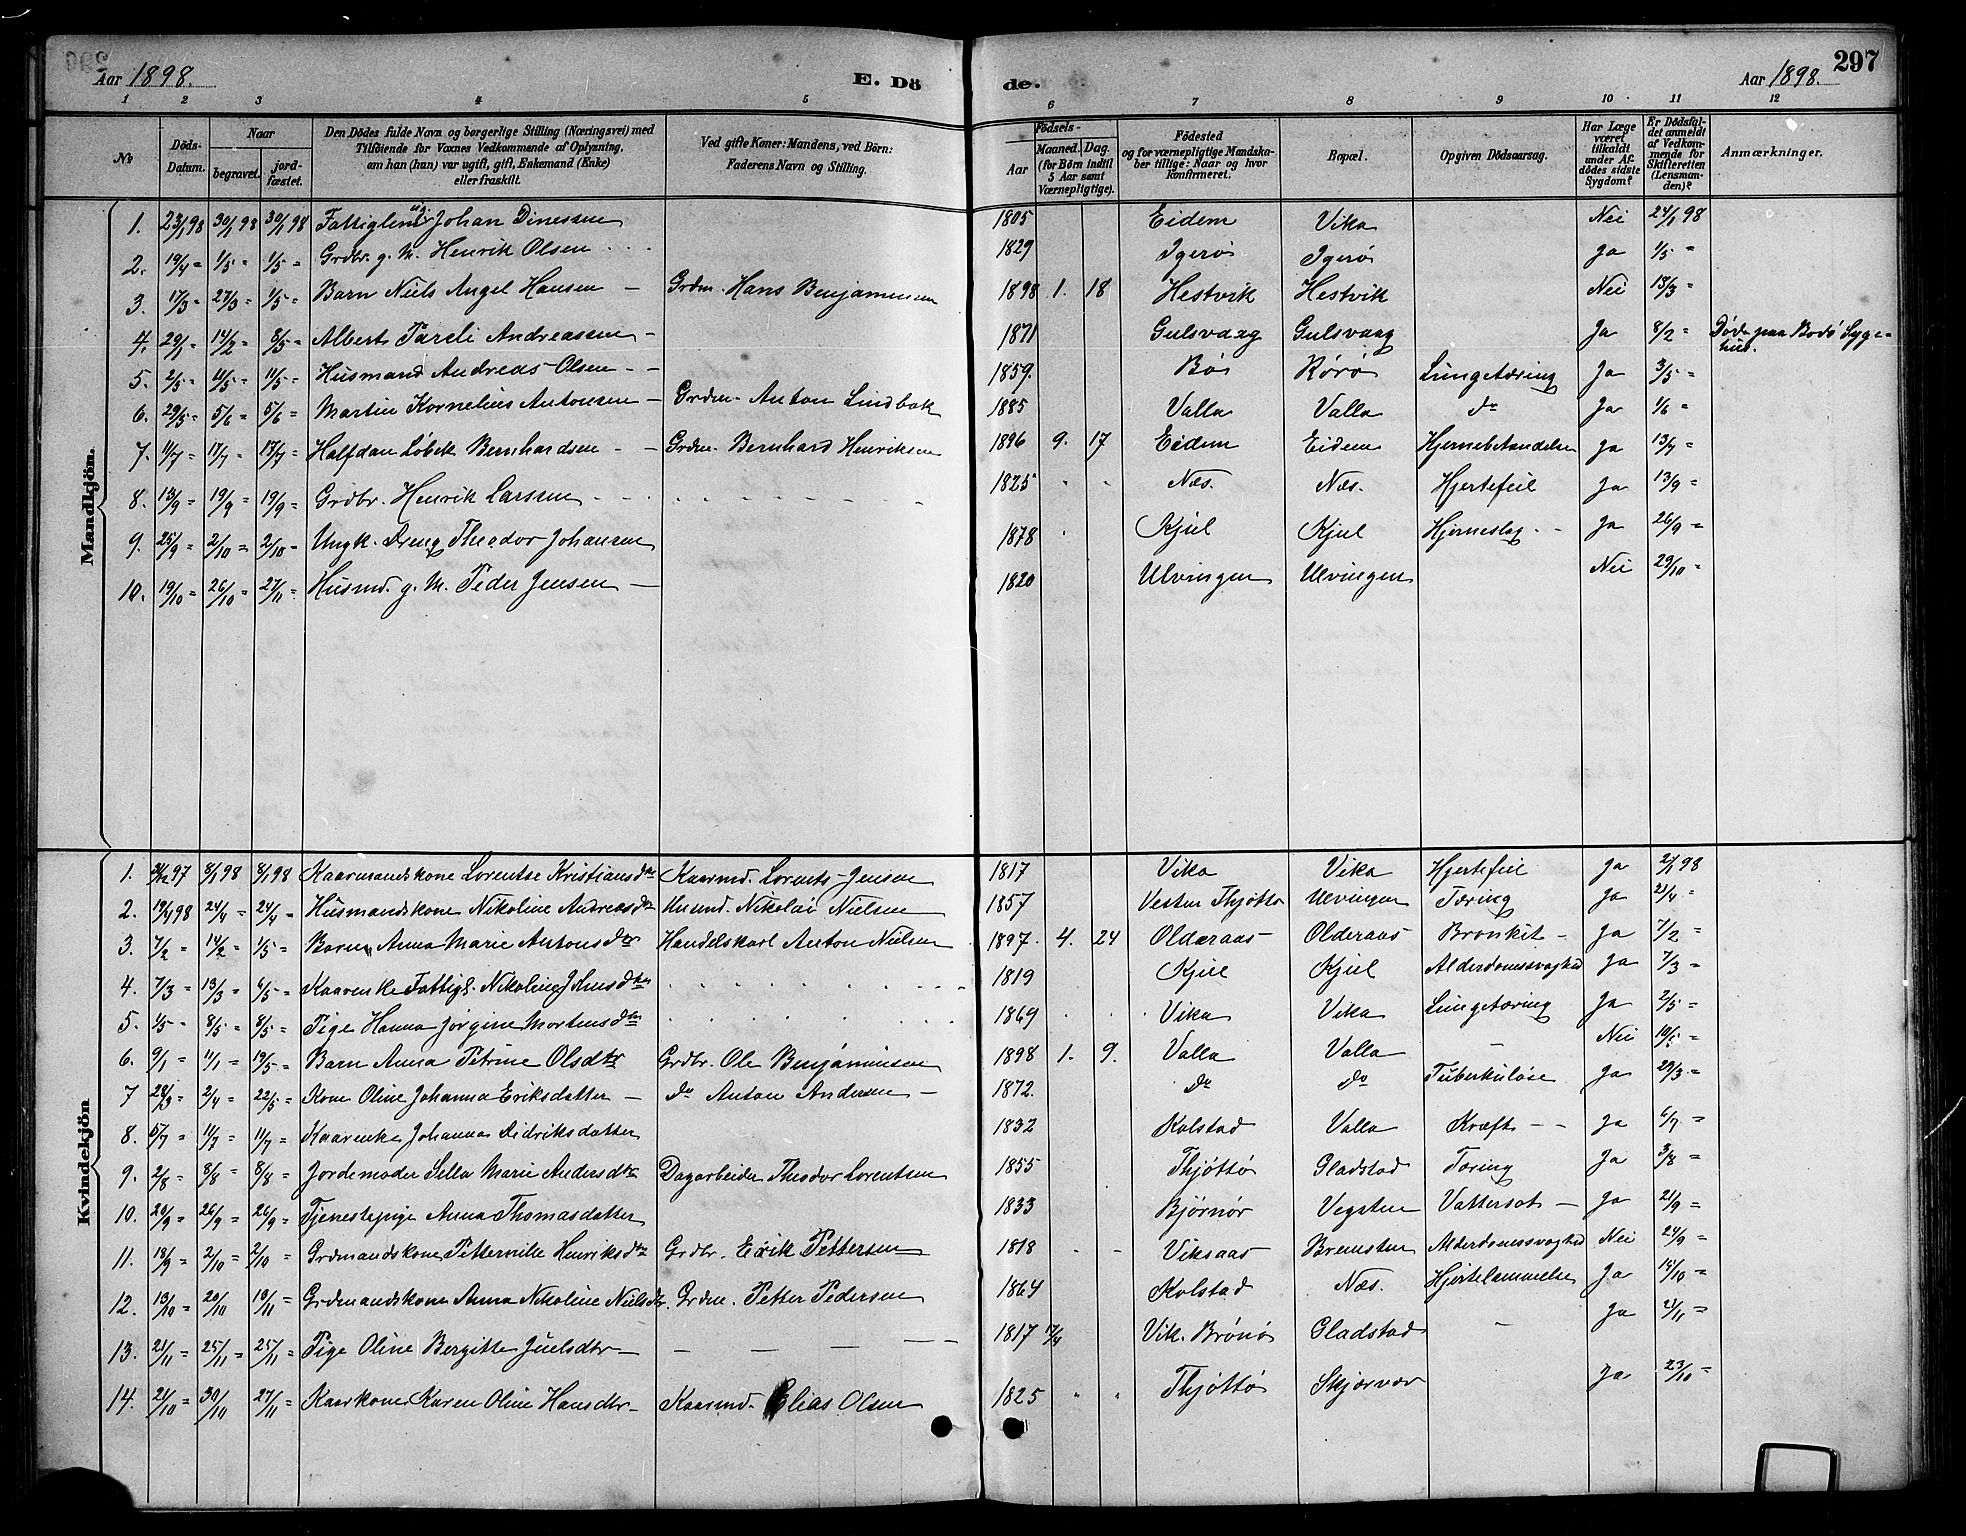 Aar 1898. E. Döde. Aar 1898. 297
1 2 3 4 5 6 7 8 9 10 11 12
No. Döds-Datum. Naar begravet. jordfæstet. Den Dödes fulde Navn og borgerlige Stilling (Næringsvei) med Tilföiende for Voxnes Vedkommende af Oplysning, om han (hun) var ugift, gift, Enkemand (Enke) eller fraskilt. Ved gifte Koner: Mandens, ved Börn: Faderens Navn og Stilling. Födsels- Aar Maaned. Dag. (for Börn indtil 5 Aar samt Værnepligtige). Födested og for værnepligtige Mandskaber tillige: Naar og hvor konfirmeret. Bopæl. Opgiven Dödsaarsag. Har Læge været tilkaldt under Afdödes sidste Sygdom? Er Dödsfaldet anmeldt af Vedkommende for Skifteretten (Lensmanden)? Anmærkninger.
Mandkjön.
1. 23/1 98 30/1 98 30/1 98 Fattiglem ug. Johan Dinessen 1805 Eidem Vika Nei 24/1 98
2. 19/4 = 1/5 = 1/5 = Grdbr. g. M. Henrik Olsen 1829 Igerø Igerø Ja 1/5 =
3. 17/3 = 27/3 = 1/5 = Barn Niels Angel Hansen – Grdm. Hans Benjaminsen 1898 1. 18 Hestvik Hestvik Nei 13/3 =
4. 29/1 = 14/2 = 8/5 = Albert Pareli Andreassen – 1871 Gulsvaag Gulsvaag Ja 8/2 = Døde paa Bodø Sygehus.
5. 2/5 = 11/5 = 11/5 = Husmand Andreas Olsen – – 1859. Bø Rørø Lungetæring Ja 3/5 =
6. 29/5 = 5/6 = 5/6 = Martin Kornelius Antonsen – Grdm. Anton Lindbak 1885 Valla Valla do Ja 1/6 =
7. 11/7 = 17/7 = 17/7 = Halfdan Løbek Bernhardsen – – Grdm. Bernhard Henriksen 1896 9. 17 Eidem Eidem Hjernebetændelse Ja 13/7 =
8. 13/9 = 19/9 = 19/9 = Grdbr. Henrik Larssen 1825 Næs. Næs. Hjertefeil Ja 13/9 =
9. 25/9 = 2/10 = 2/10 = Ungk. Dreng Theodor Johansen 1878 Kjul Kjul Hjerneslag – – Ja 26/9 =
10. 19/10 = 26/10 = 27/11 = Husmd. g. M. Peder Jensen – 1820 Ulvingen Ulvingen Nei 29/10 =
Kvindekjön
1. 31/12 97 8/1 98 8/1 98 Kaarmandskone Lorentse Kristiansdtr Kaarmd. Lorents Jensen 1817 Vika Vika Hjertefeil Ja 2/1 98
2. 19/4 98 24/4 = 24/4 = Husmandskone Nikoline Andreasdtr Husmd. Nikolai Nielsen 1857 Vester Thjøttø Ulvingen Tæring Ja 21/4 =
3. 7/2 = 14/2 = 1/5 = Barn Anna Marie Antonsdtr Handelskarl Anton Nielsen 1897. 4. 24 Olderaas Olderaas Bronkit – Ja 7/2 =
4. 7/3 = 13/3 = 6/5 = Kaarenke Fattigl. Nikoline Jensdtr 1819 Kjul Kjul Alderdomssvaghed Ja 7/3 =
5. 1/5 = 8/5 = 8/5 = Pige Hanna Jørgine Mortensdtr 1869 Vika Vika Lungetæring Ja 2/5 =
6. 9/1 = 11/1 = 19/5 = Barn Anna Petrine Olsdtr Grdbr. Ole Benjaminsen 1898 1. 9. Valla Valla – Nei 10/5 =
7 28/3 = 2/4 = 22/5 = Kone Oline Johanna Eriksdatter – do Anton Andersen – 1872. do do Tuberkuløse Ja 29/3 =
8. 5/7 = 11/7 = 11/7 = Kaarenke Johanna Didriksdatter 1832 Kolstad Valla Kræft – – Ja 6/7 =
9. 2/8 = 8/8 = 8/8 = Jordemoder Sella Marie Andersdtr Dagarbeider Theodor Lorentsen 1855 Thjøttø Gladstad Tæring Ja 3/8 =
10. 20/9 = 26/9 = 26/9 = Tjenestepige Anna Thomasdatter 1833 Bjørnør Vegsten Vattersot – Ja 21/9 =
11. 18/9 = 2/10 = 2/10 = Grdmandskone Petterville Henriksdtr Grdbr. Erik Pettersen 1818 Viksaas Bremsten Alderdomssvaghed Nei 24/9 =
12. 13/10 = 20/10 19/11 = Grdmandskone Anna Nikoline Nielsdtr. Grdm. Petter Pedersen 1864 Kolstad Næs. Hjertelammelse Ja 14/10 =
13. 21/11 = 25/11 = 25/11 = Pige Oline Bergitte Juelsdtr – 1817 17/4 Vik. Brønø Gladstad – Ja 21/11 =
14. 21/10 = 30/10 = 27/11 = Kaarkone Karen Oline Hansdtr – Kaarmd. Elias Olsen 1825 Thjøttø Skjærvær Ja 23/10 =